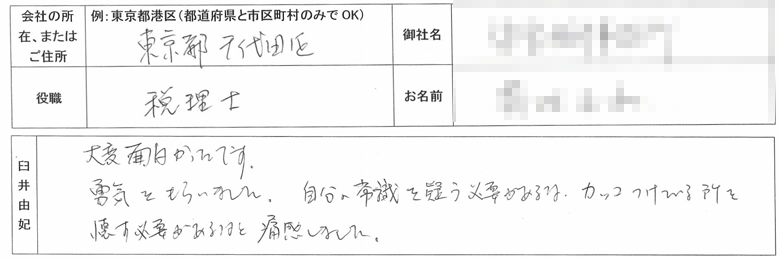 会社の所在、またはご住所
例:東京都港区(都道府県と市区町村のみでOK)
東京都 千代田区
御社名
役職
税理士
お名前
臼井由妃
大変面白かったです。
勇気をもらいました。自分の常識を疑う必要があるな、カッコつけている所を
壊す必要があるなと痛感しました。